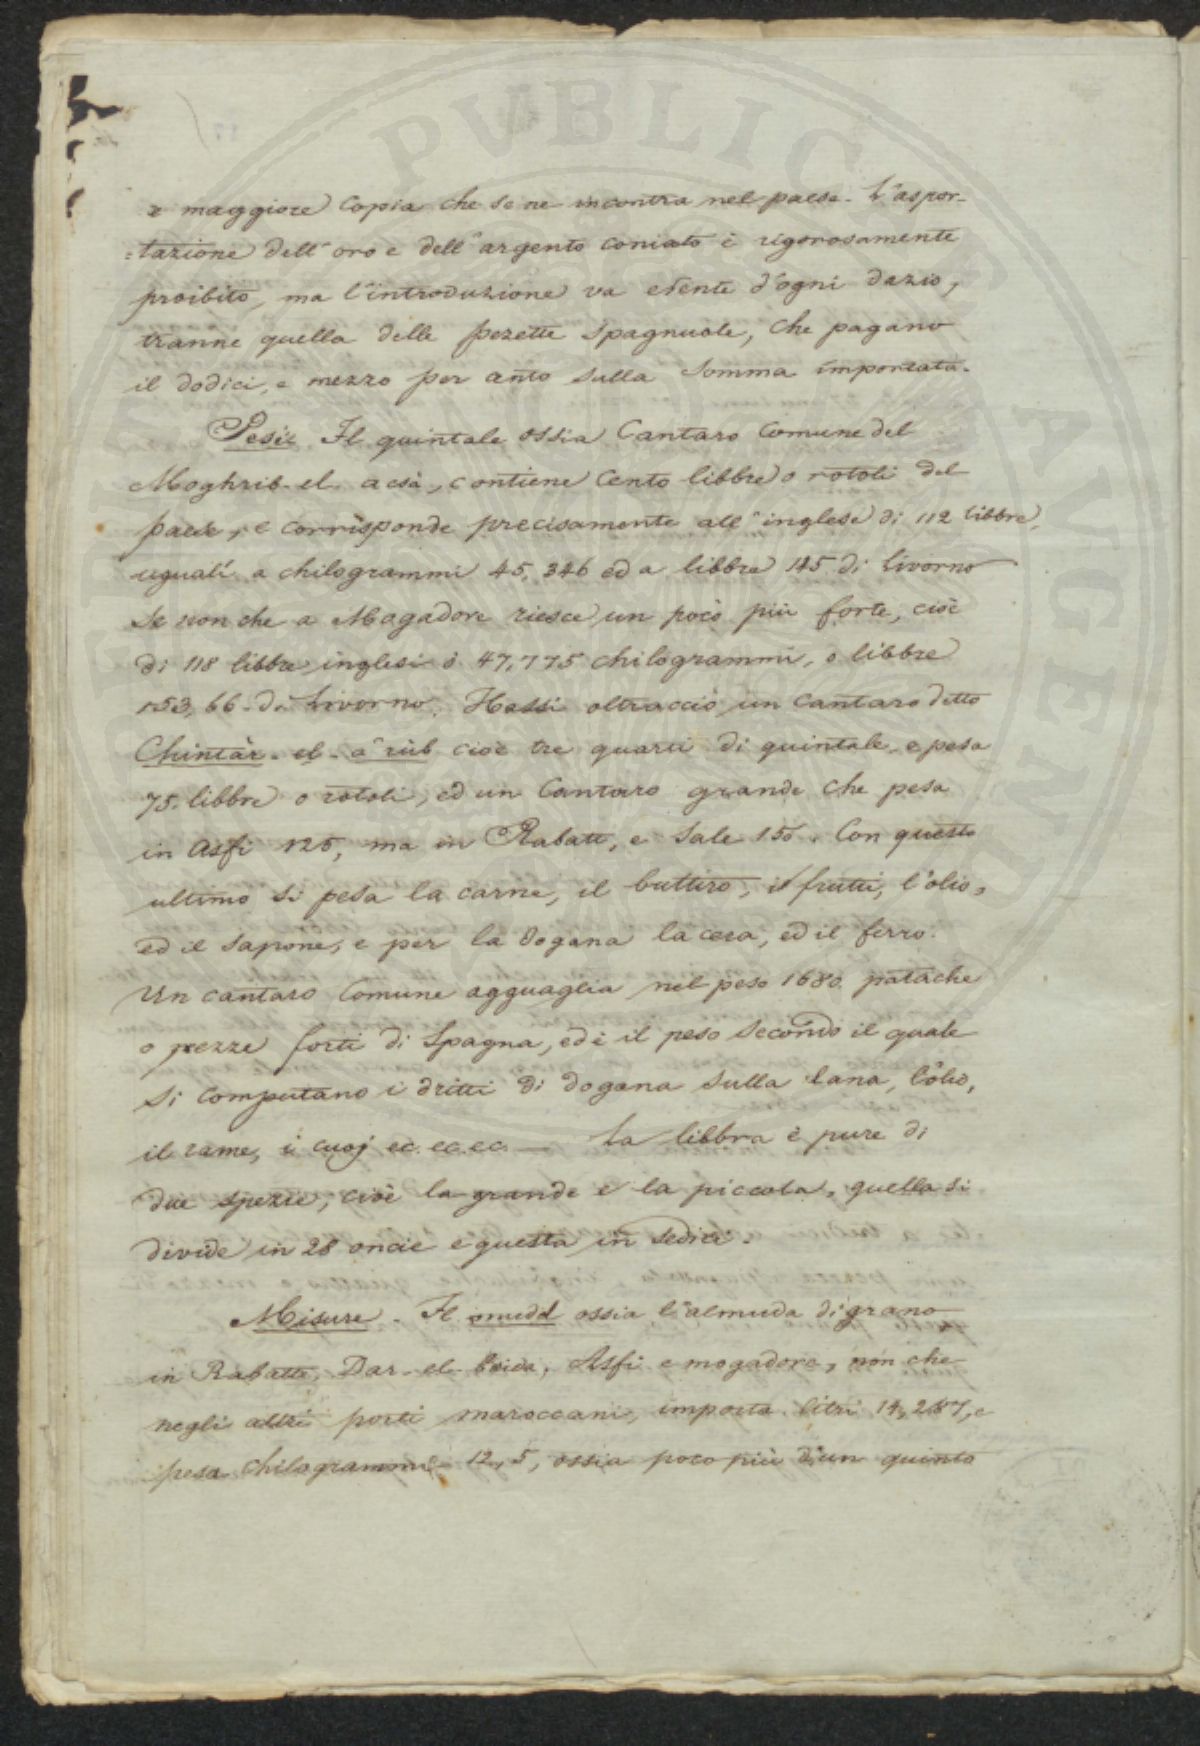 e maggiore copia che se ne incontra nel paese. L'aspor-
=tazione dell'oro e dell'argento coniato è rigorosamente
proibito, ma l'introduzione va esente d'ogni dazio,
tranne quella delle pezette spagnuole, che pagano
il dodici, e mezzo per cnto sulla somma importata.
Pesi. Il quintale ossia Cantaro comune del
Moghrib-el-acsà, contiene cento libbre o rotoli del
paese, e corrisponde precisamente all'inglese di 112 libbre,
uguali a chilogrammi 45,346 ed a libbre 145 di Livorno
Se non che a Mogadore riesce un pocò più forte, cioè
di 118 libbre inglesi ò 47,775 chilogrammi, o libbre
153,66 di Livorno. Hassi oltracciò un cantaro detto
Chintàr-el-a'rùb cioè tre quarti di quintale, e pesa
75. libbre o rotoli, ed un Cantaro grande che pesa
in Asfi 125, ma in Rabatt, e Sale 150. Con questo
ultimo si pesa la carne, il buttiro, i frutti, l'olio,
ed il sapone, e per la dogana la cera, ed il ferro.
Un cantaro comune agguaglia nel peso 1680 patache
o pezze forti di Spagna, ed è il peso secondo il quale
si computano i dritti di dogana sulla lana, l'olio,
il rame, i cuoj ec. ec. ec. — La libbra è pure di
due spezie, cioè la grande e la piccola, quella si
divide in 28 oncie e questa in sedici.
Misure. Il mudd ossia l'almuda di grano
in Rabatte, Dar-el-beida, Asfi e mogadore, non che
negli altri porti maroccani, importa litri 14,287, e
pesa chilogrammi 12,5, ossia poco più d'un quinto
PUBLICE